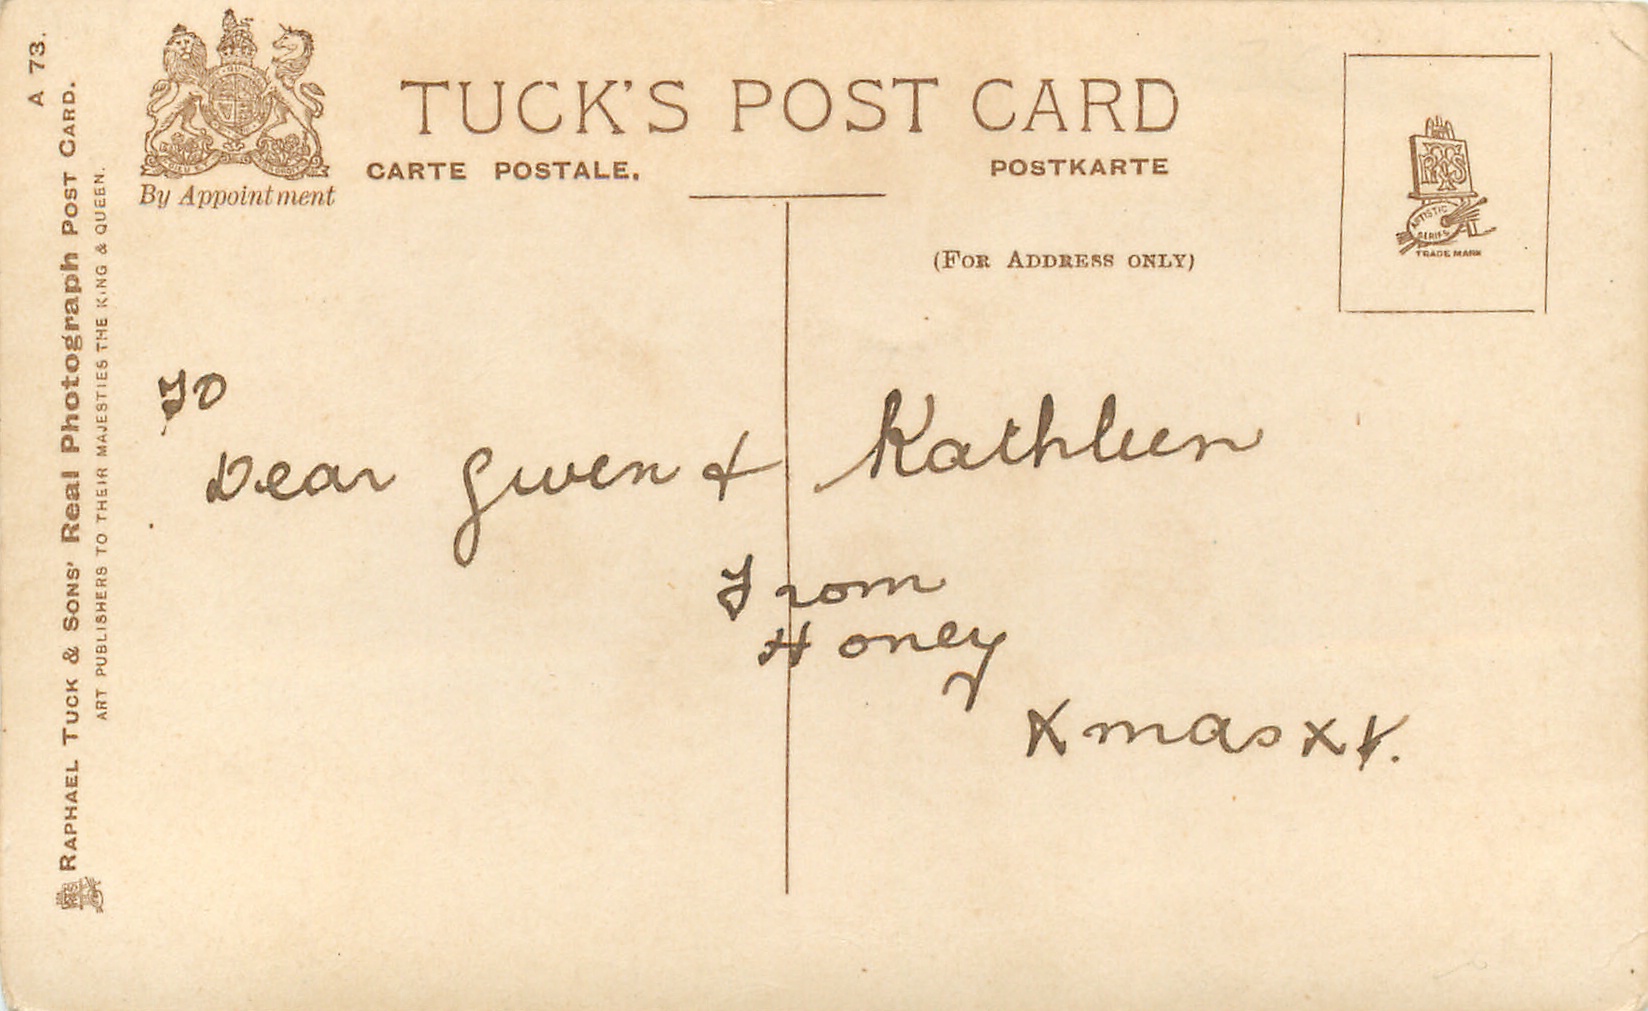 A 73.
RAPHAEL TUCK & SONS' Real Photograph POST CARD.
ART PUBLISHERS TO THEIR MAJESTIES THE KING & QUEEN.
By Appointment
TUCK'S POST CARD
CARTE POSTALE.
POSTKARTE
(FOR ADDRESS ONLY)
ARTISTIC
SERIES
TRADE MARK
To
Dear Gwen & Kathleen
From
Honey
Xmas XX.